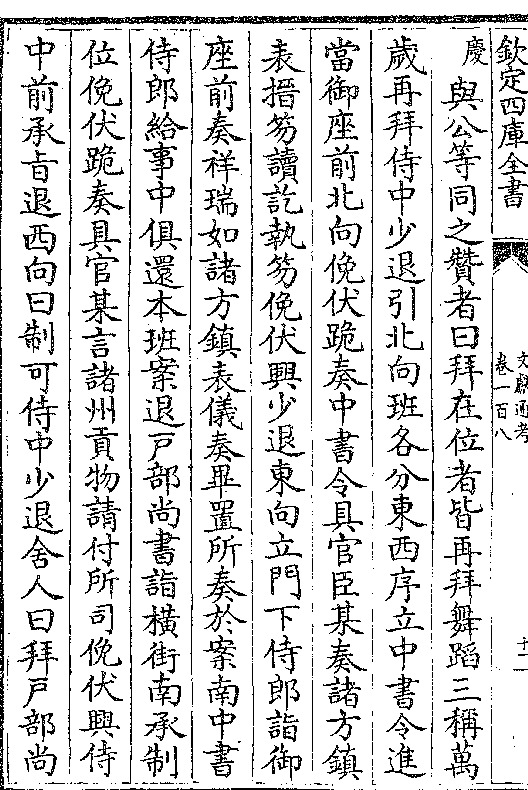 欽定四庫全書
文獻通考
卷一百八
十一
慶 與公等同之贊者曰拜在位者皆再拜舞蹈三稱萬
歲再拜侍中少退引北向班各分東西序立中書令進
當御座前北向俛伏跪奏中書令具官臣某奏諸方鎮
表搢笏讀訖執笏俛伏興少退東向立門下侍郎詣御
座前奏祥瑞如諸方鎮表儀奏畢置所奏於案南中書
侍郎給事中俱還本班案退戸部尚書詣橫街南承制
位俛伏跪奏具官某言諸州貢物請付所司俛伏興侍
中前承旨退西向曰制可侍中少退舍人曰拜戸部尚